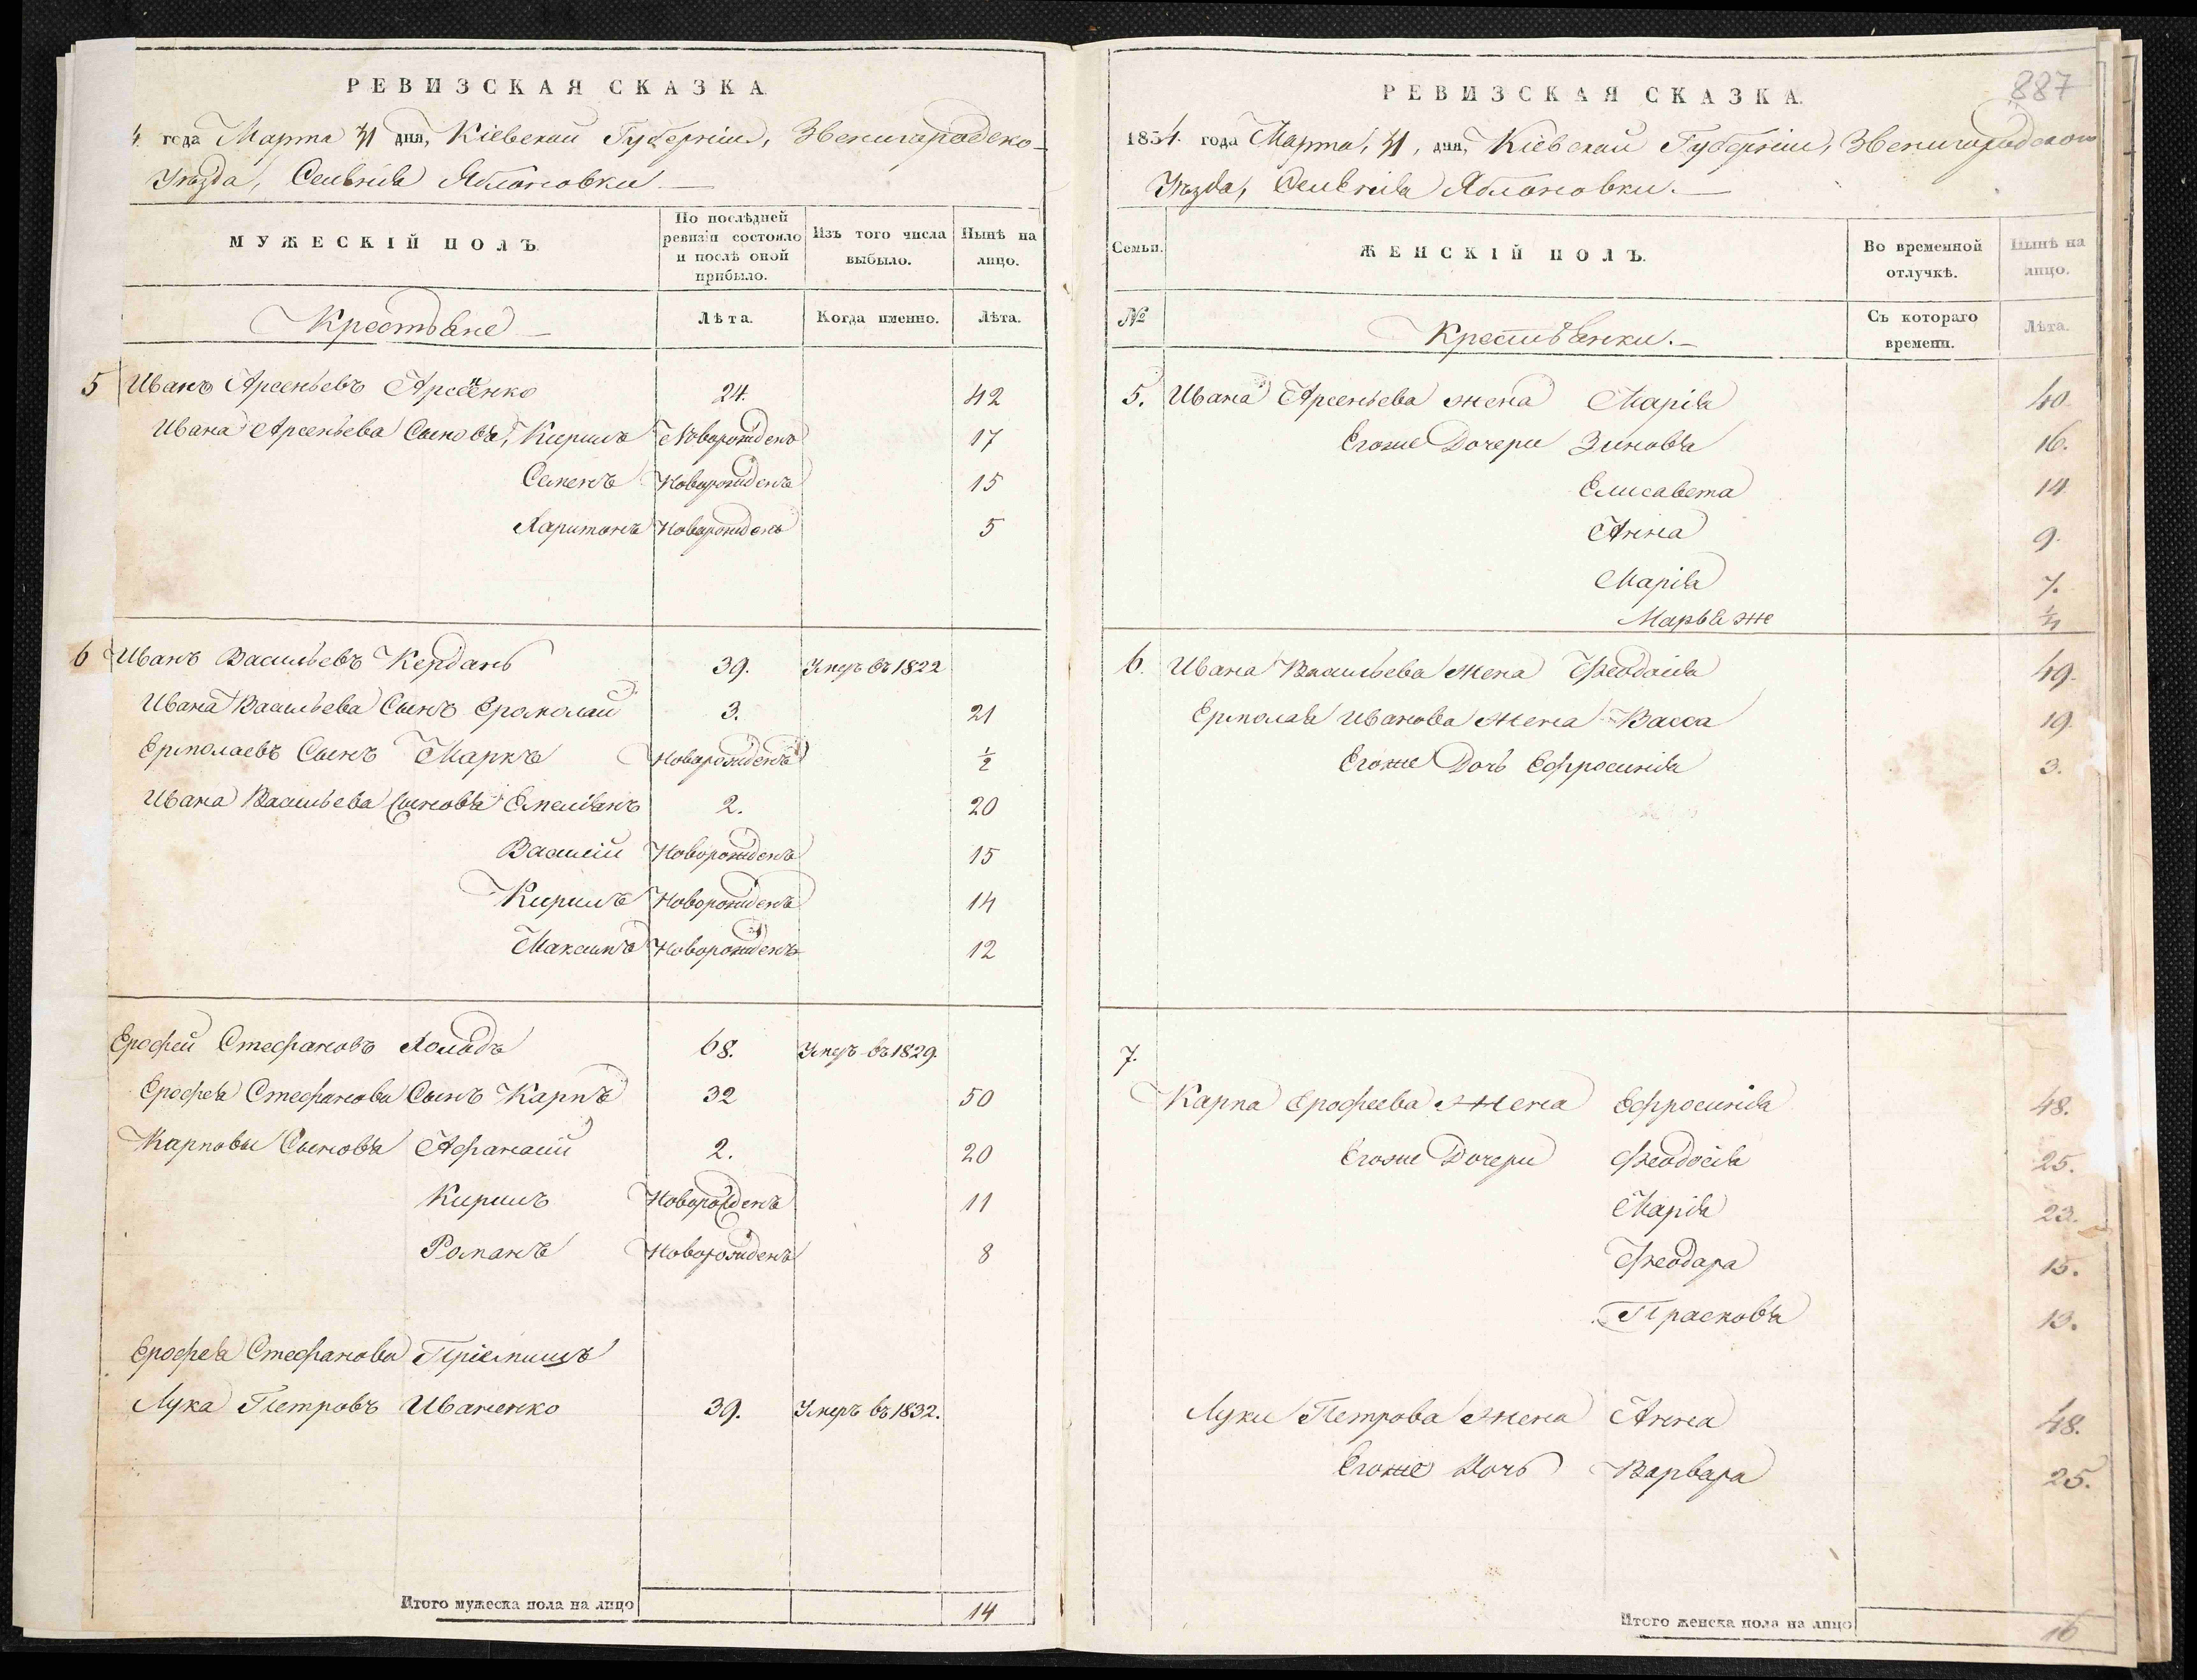 РЕВИЗСКАЯ СКАЗКА
4 года Марта 31 дня, Кіевской Губерніи, Звенигородско-
Уѣзда, Селенія Яблоновки
МУЖЕСКІЙ ПОЛЪ.
По послѣдней ревизіи состояло и послѣ оной прибыло.
Изъ того числа выбыло.
Нынѣ на лицо.
Крестьяне
Лѣта.
Когда именно.
Лѣта.
5 Иванъ Арсеньевъ Арсеенко 24. 42
Ивана Арсеньева Сыновья, Кирилъ Новорожденъ 17
Семенъ Новорожденъ 15
Харитонъ Новорожденъ 5
6 Иванъ Васильевъ Кердань 39. Умеръ въ 1822
Ивана Васильева Сынъ Ермолай 3. 21
Ермолаевъ Сынъ Маркъ Новорожденъ ½
Ивана Васильева Сыновья Емеліанъ 2. 20
Василій Новорожденъ 15
Кирилъ Новорожденъ 14
Максимъ Новорожденъ 12
Ерофей Стефановъ Холодъ 68. Умеръ въ 1829.
Ерофея Стефанова Сынъ Карпъ 32 50
Карповы Сыновья Афанасій 2. 20
Кирилъ Новорожденъ 11
Романъ Новорожденъ 8
Ерофея Стефанова Пріемышъ
Лука Петровъ Иваненко 39. Умеръ въ 1832.
Итого мужеска пола на лицо 14
887
РЕВИЗСКАЯ СКАЗКА.
1834. года Марта, 31, дня, Кіевской Губерніи, Звенигородского
Уѣзда, Селенія Яблоновки.
Семьи.
ЖЕНСКІЙ ПОЛЪ.
Во временной отлучкѣ.
Нынѣ на лицо.
№
Крестьянки.
Съ котораго времени.
Лѣта.
5. Ивана Арсеньева жена Марія 40
Егоже Дочери Зиновья 16.
Елисавета 14
Анна 9.
Марія 7.
Марья же ½
6. Ивана Васильева Жена Феодосія 49.
Ермолая Иванова жена Васса 19.
Егоже Дочь Ефросинія 3.
7.
Карпа Ерофеева Жена Ефросинія 48.
Егоже Дочери Феодосія 25.
Марія 23.
Феодора 15.
Прасковья 13.
Луки Петрова Жена Анна 48.
Егоже Дочь Варвара 25.
Итого женска пола на лицо 16